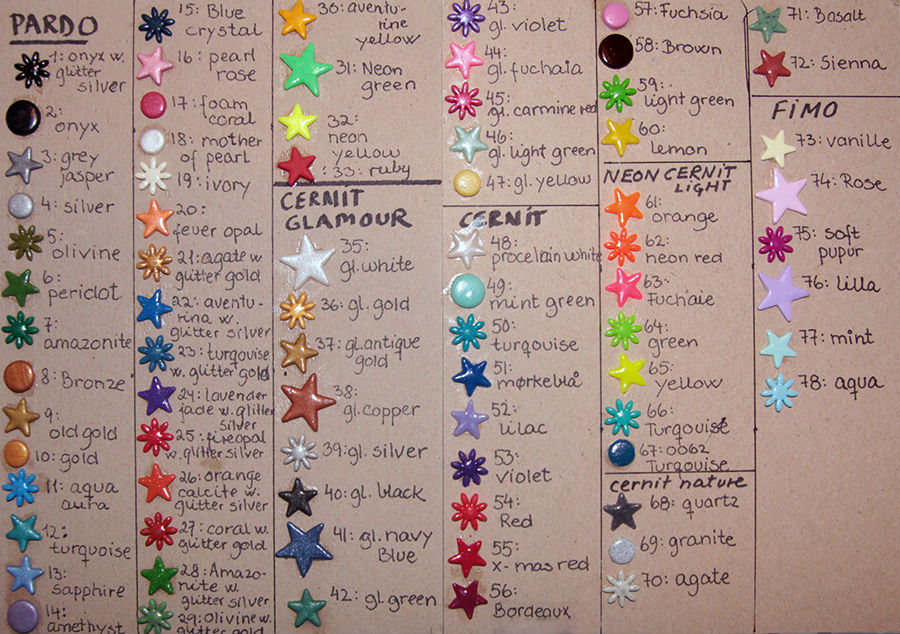 PARDO
1: onyx w.
glitter
silver
2:
onyx
3: grey
jasper
4: silver
5:
olivine
6:
periclot
7:
amazonite
8: Bronze
9:
old gold
10: gold
11: aqua
aura
12:
turquoise
13:
sapphire
14:
amethyst
15: Blue
crystal
16: pearl
rose
17: foam
coral
18: mother
of pearl
19: ivory
20:
fever opal
21: agate w.
glitter gold
22: aventu-
rina w.
glitter silver
23: turqouise
w. glitter gold
24: lavender
jade w. glitter
silver
25: fireopal
w. glitter silver
26: orange
calcite w.
glitter silver
27: coral w.
glitter gold
28: Amazo-
nite w.
glitter silver
29: olivine w.
glitter gold
30: aventu-
rine
yellow
31: Neon
green
32:
neon
yellow
33: ruby
CERNIT
GLAMOUR
35:
gl. white
36: gl. gold
37: gl. antique
gold
38:
gl. copper
39: gl. silver
40: gl. black
41: gl. navy
Blue
42: gl. green
43:
gl. violet
44:
gl. fuchaia
45:
gl. carmine red
46:
gl. light green
47: gl. yellow
CERNIT
48:
procelain white
49:
mint green
50:
turquoise
51:
mørkeblå
52:
lilac
53:
violet
54:
Red
55:
x-mas red
56:
Bordeaux
57: Fuchsia
58: Brown
59:
light green
60:
lemon
NEON CERNIT
LIGHT
61:
orange
62:
neon red
63:
Fuchaie
64:
green
65:
yellow
66:
Turquoise
67: 0062
Turquoise
cernit nature
68: quartz
69: granite
70: agate
71: Basalt
72: Sienna
FIMO
73: vanille
74: Rose
75: soft
pupur
76: Lilla
77: mint
78: aqua